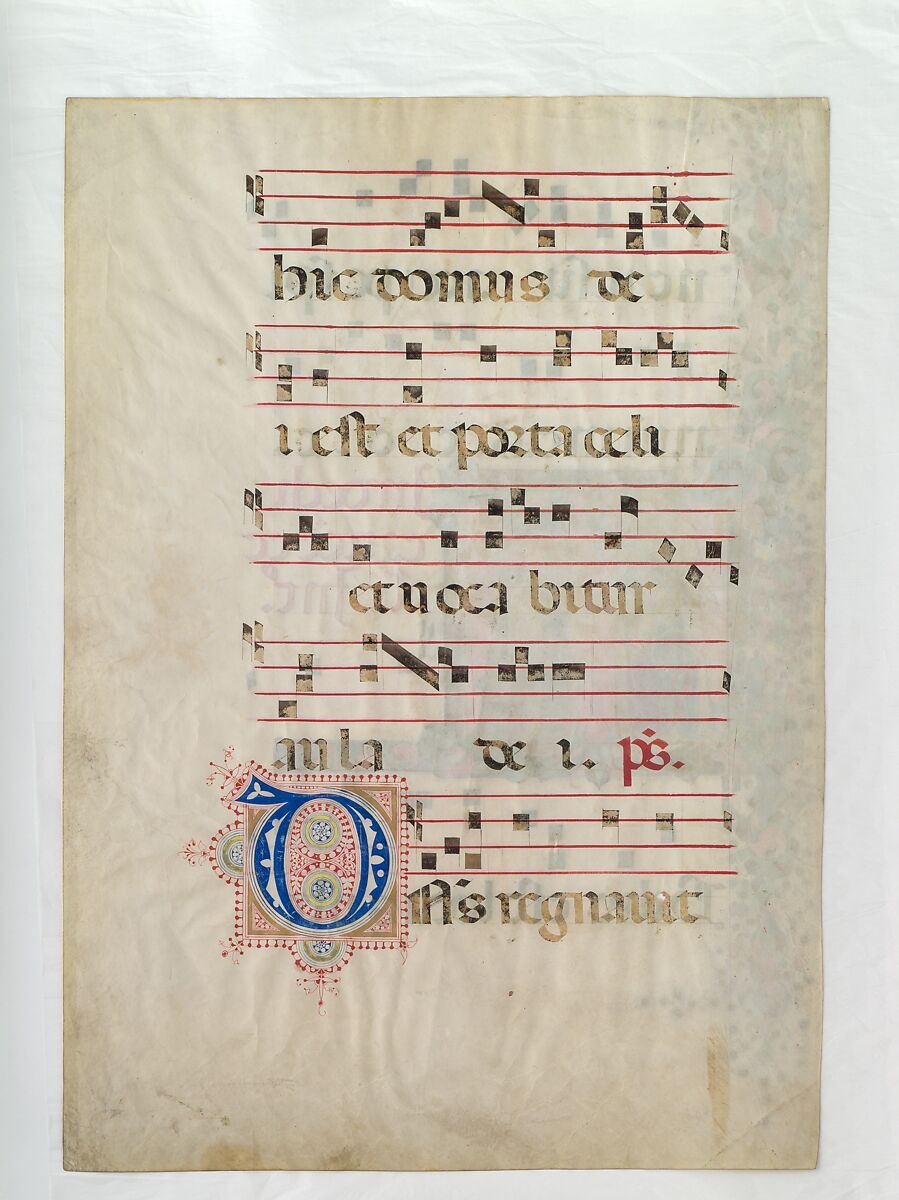 hic domus de
i est et porta celi
et uoca bitur
aula de i. ps.
Dns regnauit